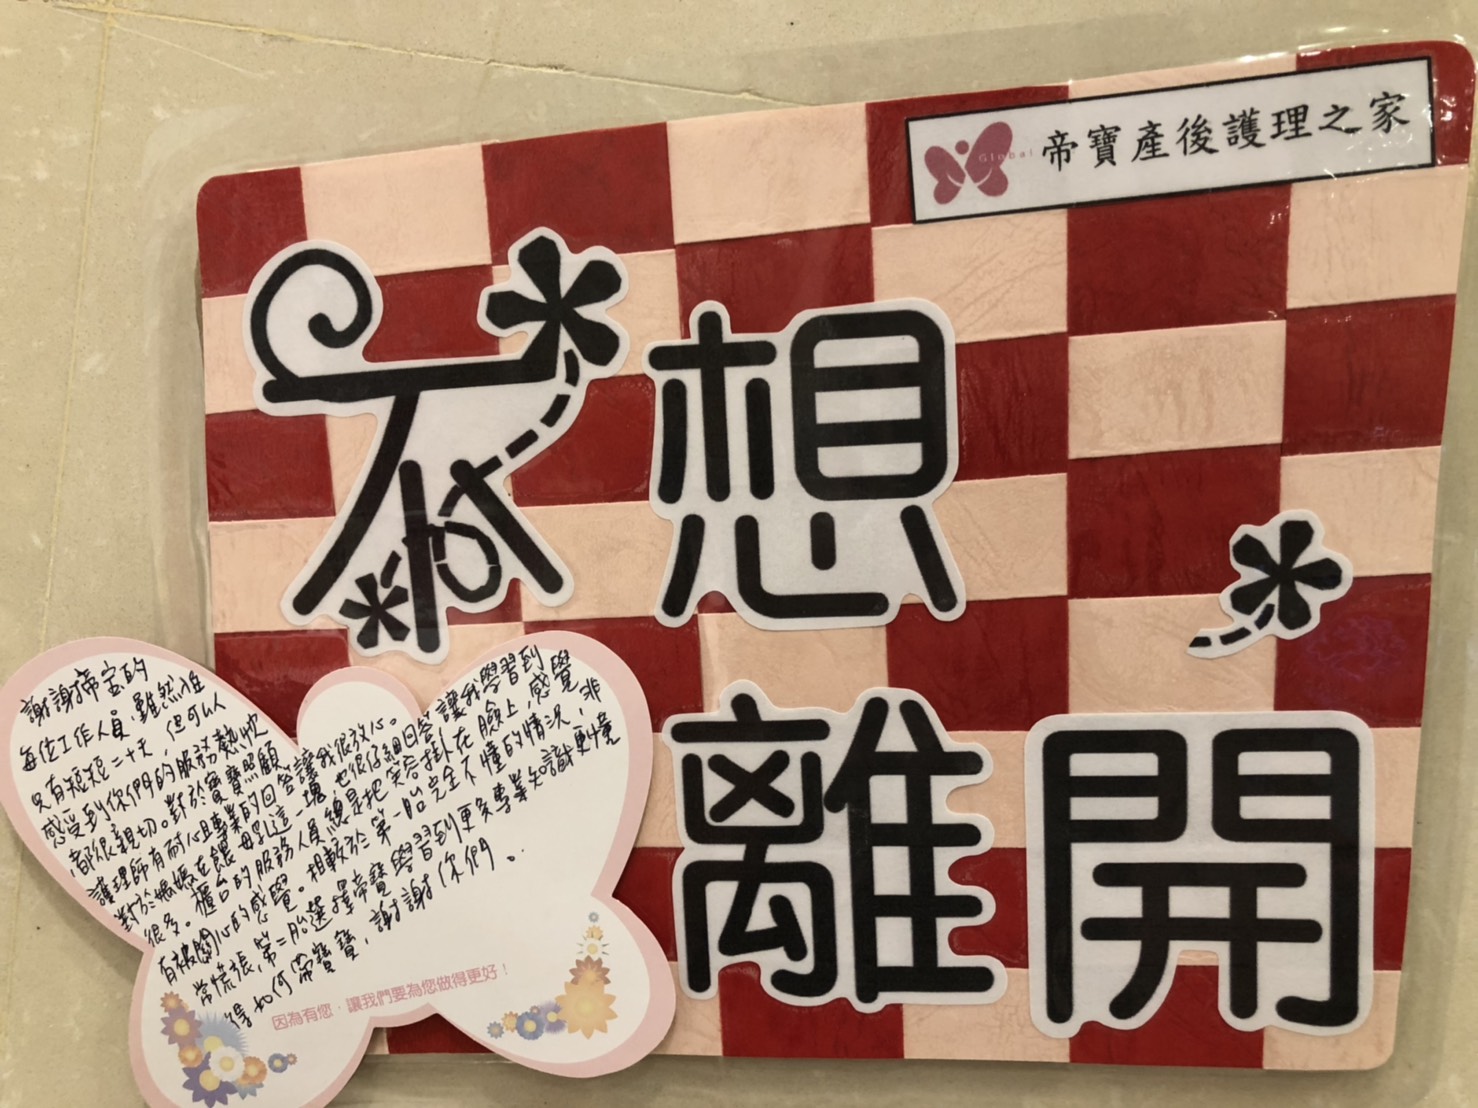 Global 帝寶產後護理之家
不想
離開
謝謝帝宝的
每位工作人員，雖然住
只有短短二十天，但可以
感受到你們的服務熱忱
都很親切。對於寶寶照顧
護理師有耐心且專業的回答讓我很放心。
對於媽媽在餵母乳這一塊也很仔細回答讓我學習到
很多。櫃台的服務人員總是把笑容掛在臉上，感覺
有被關心的感覺。相較於第一胎完全不懂的情況，非
常慌張，第二胎選擇帝寶學習到更多專業知識更懂
得如何帶寶寶，謝謝你們。
因為有您，讓我們要為您做得更好！